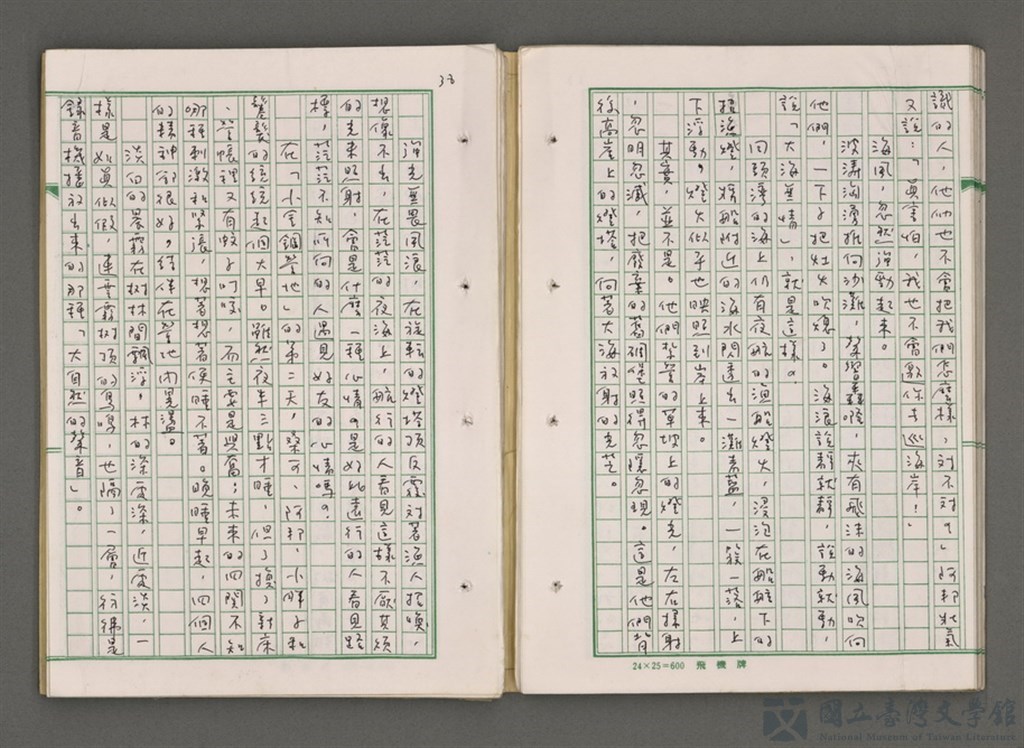 識的人，他們也不會把我們怎麼樣，對不對？」阿邦壯氣
又說：「真害怕，我也不會邀你去巡海岸！」
海風，忽然強勁起來。
波濤洶湧推向沙灘，聲響轟隆，夾有飛沫的海風吹向
他們，一下子把灶火吹熄了。海浪說靜就靜，說動就動，
說「大海無情」，就是這樣。
回頭灣的海上仍有夜航的漁船燈火，浸泡在船艇下的
捂漁燈，將船附近的海水閃透出一灘青藍，一簇一落，上
下浮動。燈火似乎也映照到岸上來。
其實，並不是。他們紮營的草坡上的燈光，左右掃射
，忽明忽滅，把廢棄的舊碉堡照得忽隱忽現。這是他們背
後高崖上的燈塔，向著大海放射的光芒。
33
強光無畏風浪，在旋轉的燈塔頂反覆對著漁人招喚，
想像不出，在茫茫的夜海上，航行的人看見這樣不厭其煩
的光來照射，會是什麼一種心情？是如此遠行的人看見路
標，茫茫不知所向的人遇見好友的心情嗎？
在「小金鋼營地」的第二天，桑可、阿邦、小胖子和
鬈髮的統統起個大早。雖然夜半三點才睡，但了換了對床
、營帳裡又有蚊子叮咬，而主要是興奮；未來的四閃不知
哪種刺激和緊張，想著想著便睡不著。晚睡早起，四個人
的精神卻很好，結伴在營地閒晃盪。
淡白的晨霧在樹林間飄浮，林的深處深，近處淡，一
樣是如真似假，連雲霧樹頂的鳥鳴，也隔了一層，彷彿是
錄音機播放出來的那種「大自然的聲音」。
24×25=600 飛機牌
國立臺灣文學館
National Museum of Taiwan Literature